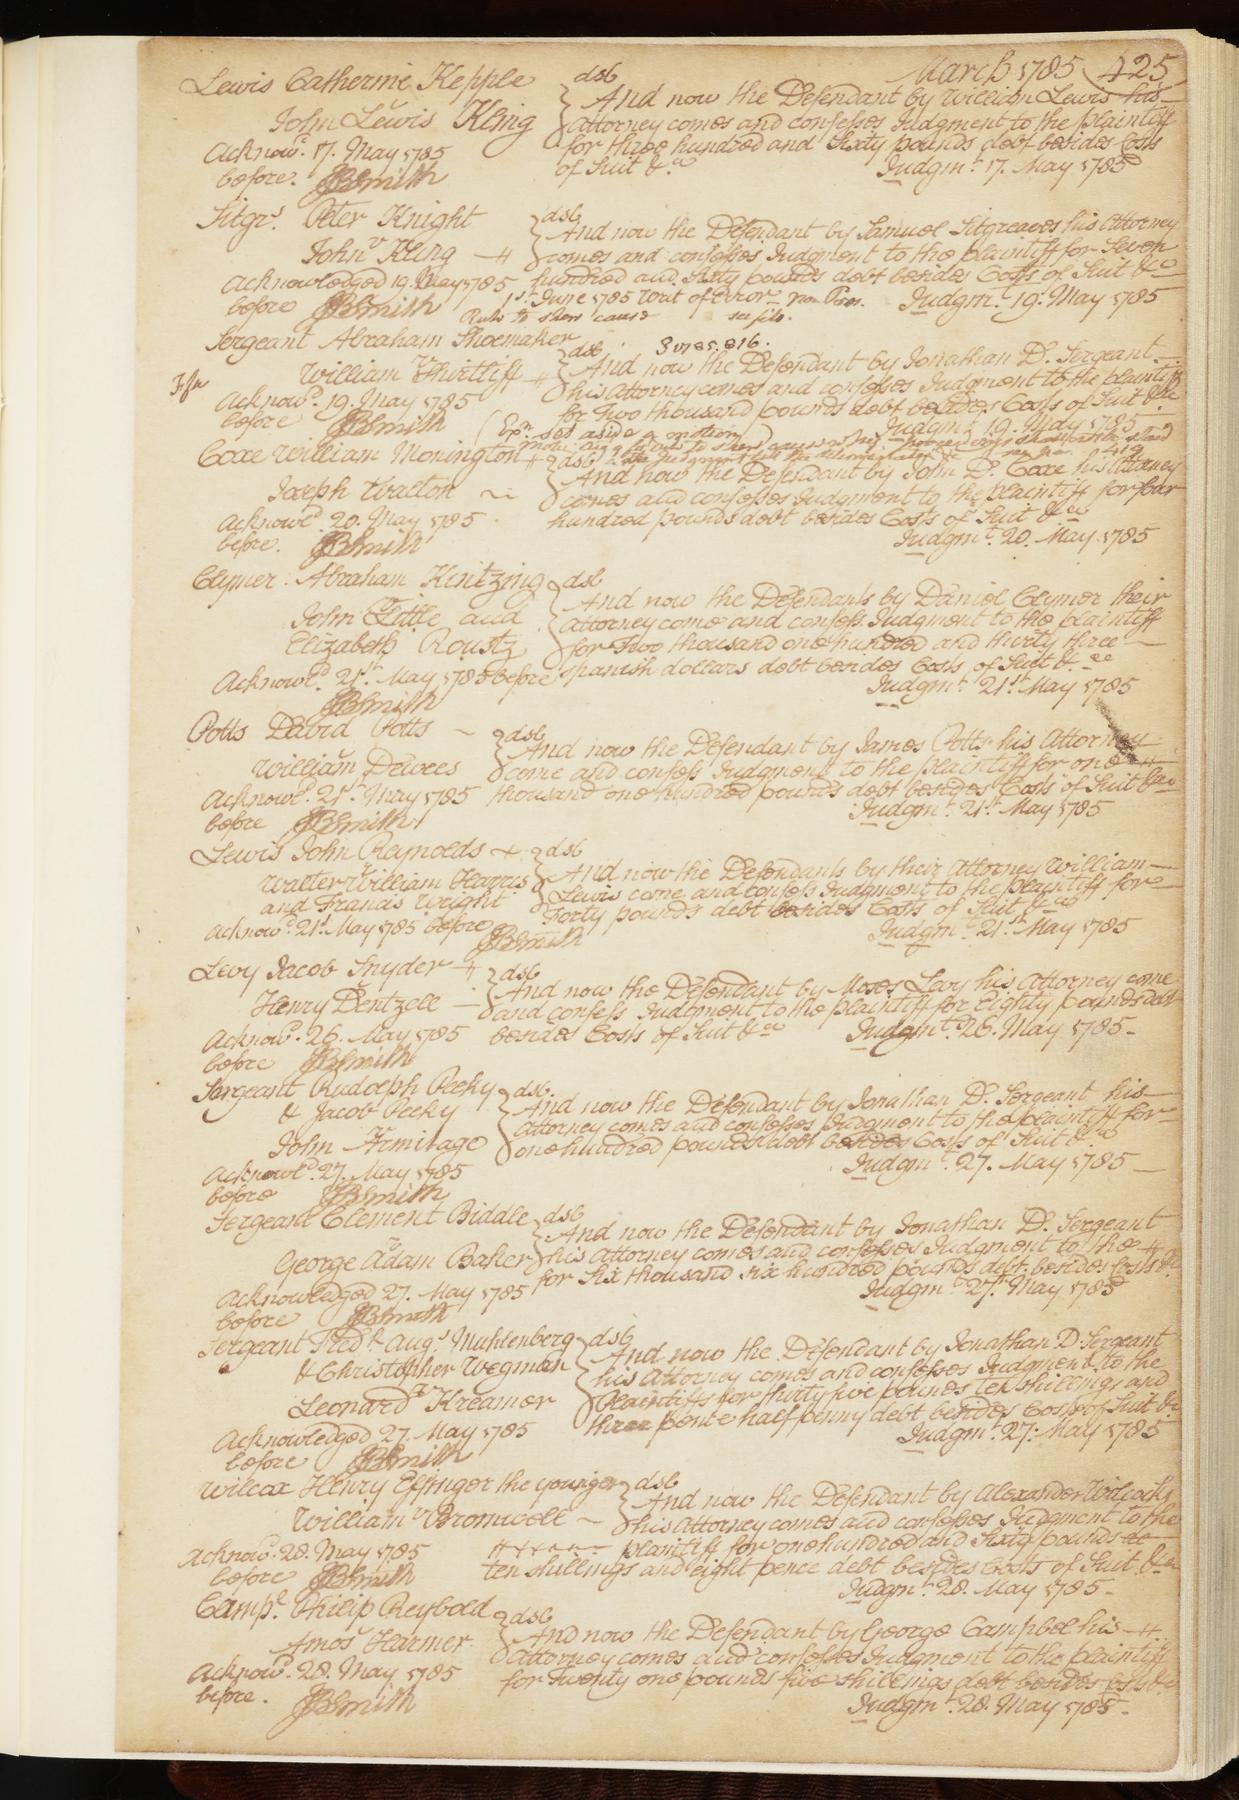 March 1785 425
Lewis Catherine Kepple } dsb
v
John Lewis Kling
And now the Defendant by William Lewis his
attorney comes and confesses Judgment to the plaintiff
for three hundred and Sixty pounds debt besides Costs
of Suit &ca
Judgmt. 17. May 1785
Acknowd. 17. May 1785
before. JBSmith
Sitgrs. Peter Knight } dsb
v
John Kling
And now the Defendant by Samuel Sitgreaves his Attorney
comes and confesses Judgment to the plaintiff for Seven
hundred and Sixty pounds debt besides Costs of Suit &ca
Judgmt. 19. May 1785
Acknowledged 19. May 1785
before JBSmith
1st June 1785 Writ of Error Non Pros.
Rule to shew cause see file.
Sergeant Abraham Shoemaker } dsb
v
William Thirtliff
And now the Defendant by Jonathan D. Sergeant
his Attorney comes and confesses Judgment to the plaintiff
for Two thousand pounds debt besides Costs of Suit &ca
Judgmt. 19. May 1785
Acknowd. 19. May 1785
before JBSmith
Exn. set aside a motion
Coxe William Monington } dsb
v
Joseph Walton
And now the Defendant by John D. Coxe his Attorney
comes and confesses Judgment to the plaintiff for four
hundred pounds debt besides Costs of Suit &ca
Judgmt. 20. May 1785
Acknowd. 20. May 1785
before. JBSmith
Clymer. Abraham Kintzing } dsb
v
John Tittle and
Elizabeth Roustz
And now the Defendants by Daniel Clymer their
attorney come and confess Judgment to the plaintiff
for Two thousand one hundred and thirty three
spanish dollars debt besides Costs of Suit &ca
Judgmt. 21st May 1785
Acknowd. 21st. May 1785 before
JBSmith
Potts David Potts } dsb
v
William Dewees
And now the Defendant by James Potts his Attorney
come and confess Judgment to the plaintiff for one
thousand one hundred pounds debt besides Costs of Suit &ca
Judgmt. 21st. May 1785
Acknowd. 21st. May 1785
before JBSmith
Lewis John Reynolds } dsb
v
Walter William Harris
and Francis Wright
And now the Defendants by their Attorney William
Lewis come and confess Judgment to the plaintiff for
Forty pounds debt besides Costs of Suit &ca
Judgmt. 21st. May 1785
Acknowd. 21st. May 1785 before
JBSmith
Levy Jacob Snyder } dsb
v
Henry Dentzell
And now the Defendant by Moses Levy his Attorney come
and confess Judgment to the plaintiff for Eighty pounds debt
besides Costs of Suit &ca
Judgmt. 26. May 1785
Acknowd. 26. May 1785
before JBSmith
Sergeant Rudolph Peeky } dsb
& Jacob Peeky
v
John Armitage
And now the Defendant by Jonathan D. Sergeant his
attorney comes and confesses Judgment to the plaintiff for
one hundred pounds debt besides Costs of Suit &ca
Judgmt. 27. May 1785
Acknowd. 27. May 1785
before JBSmith
Sergeant Clement Biddle } dsb
v
George Adam Baker
And now the Defendant by Jonathan D. Sergeant
his Attorney comes and confesses Judgment to the
for Six thousand six hundred pounds debt besides Costs &c
Judgmt. 27. May 1785
Acknowledged 27. May 1785
before JBSmith
Sergeant Fredk. Augs. Muhlenberg } dsb
& Christopher Wegman
v
Leonard Kreamer
And now the Defendant by Jonathan D. Sergeant
his Attorney comes and confesses Judgment to the
Plaintiffs for thirty five pounds ten shillings and
three pence half penny debt besides Costs of Suit &c
Judgmt. 27. May 1785
Acknowledged 27. May 1785
before JBSmith
Wilcox Henry Effinger the younger } dsb
v
William Bromwell
And now the Defendant by Alexander Wilcocks
his Attorney comes and confesses Judgment to the
plaintiff for one hundred and Sixty pounds
ten shillings and eight pence debt besides Costs of Suit &ca
Judgmt. 28. May 1785
Acknowd. 28. May 1785
before JBSmith
Campl. Philip Reybold } dsb
v
Amos Harmer
And now the Defendant by George Campbel his
attorney comes and confesses Judgment to the plaintiff
for Twenty one pounds five shillings debt besides Costs &c
Judgmt. 28. May 1785
Acknowd. 28. May 1785
before. JBSmith